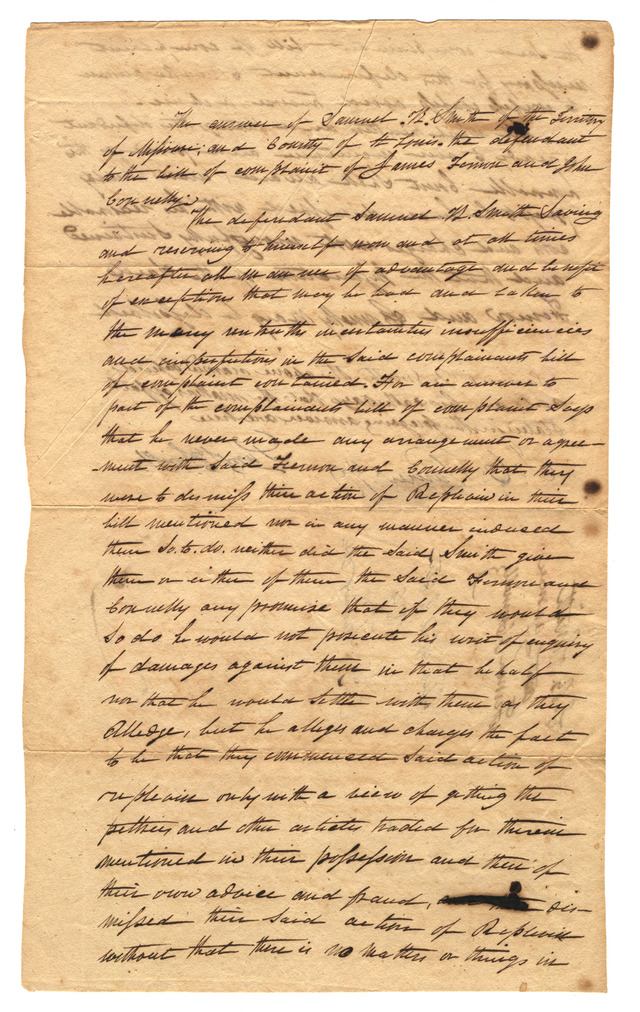 The answer of Samuel Smith of the Territory
of Missouri, and County of St Louis, the defendant
to the bill of complaint of James Fernon and John
Connelly.
The defendant Samuel Smith Saving
and reserving to himself now and at all times
hereafter all manner of advantage and benefit
of exceptions that may be had and taken to
the many untruths incertainties insufficiencies
and imperfections in the Said complainants bill
of complaint contained. For an answer to
part of the complainants bill of complaint Says
that he never made any arrangement or agree-
ment with Said Fernon and Connelly that they
were to dismiss their action of Replevin in their
bill mentioned nor in any manner induced
them So. to. do. neither did the Said Smith give
them or either of them the Said Fernon and
Connelly any promise that if they would
So do he would not prosecute his writ of enquiry
of damages against them in that behalf
nor that he would Settle with them as they
Alledge, but he alleges and charges the fact
to be that they commenced Said action of
replevin only with a view of getting the
peltries and other articles traded for therein
mentioned in their possession and then of
their own advice and fraud, dis-
missed their Said action of Replevin
without that there is no matters or things in